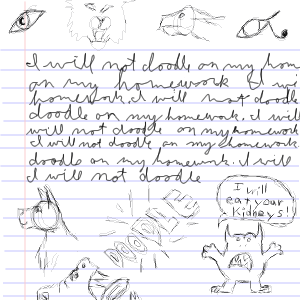 I will not doodle on my hom
on my homework I wi
homework. I will not doodle
doodle on my homework. I will
will not doodle on my homework
I will not doodle on my homework.
doodle on my homework. I will
I will not doodle
DOODLE
I will
eat your
kidneys!!